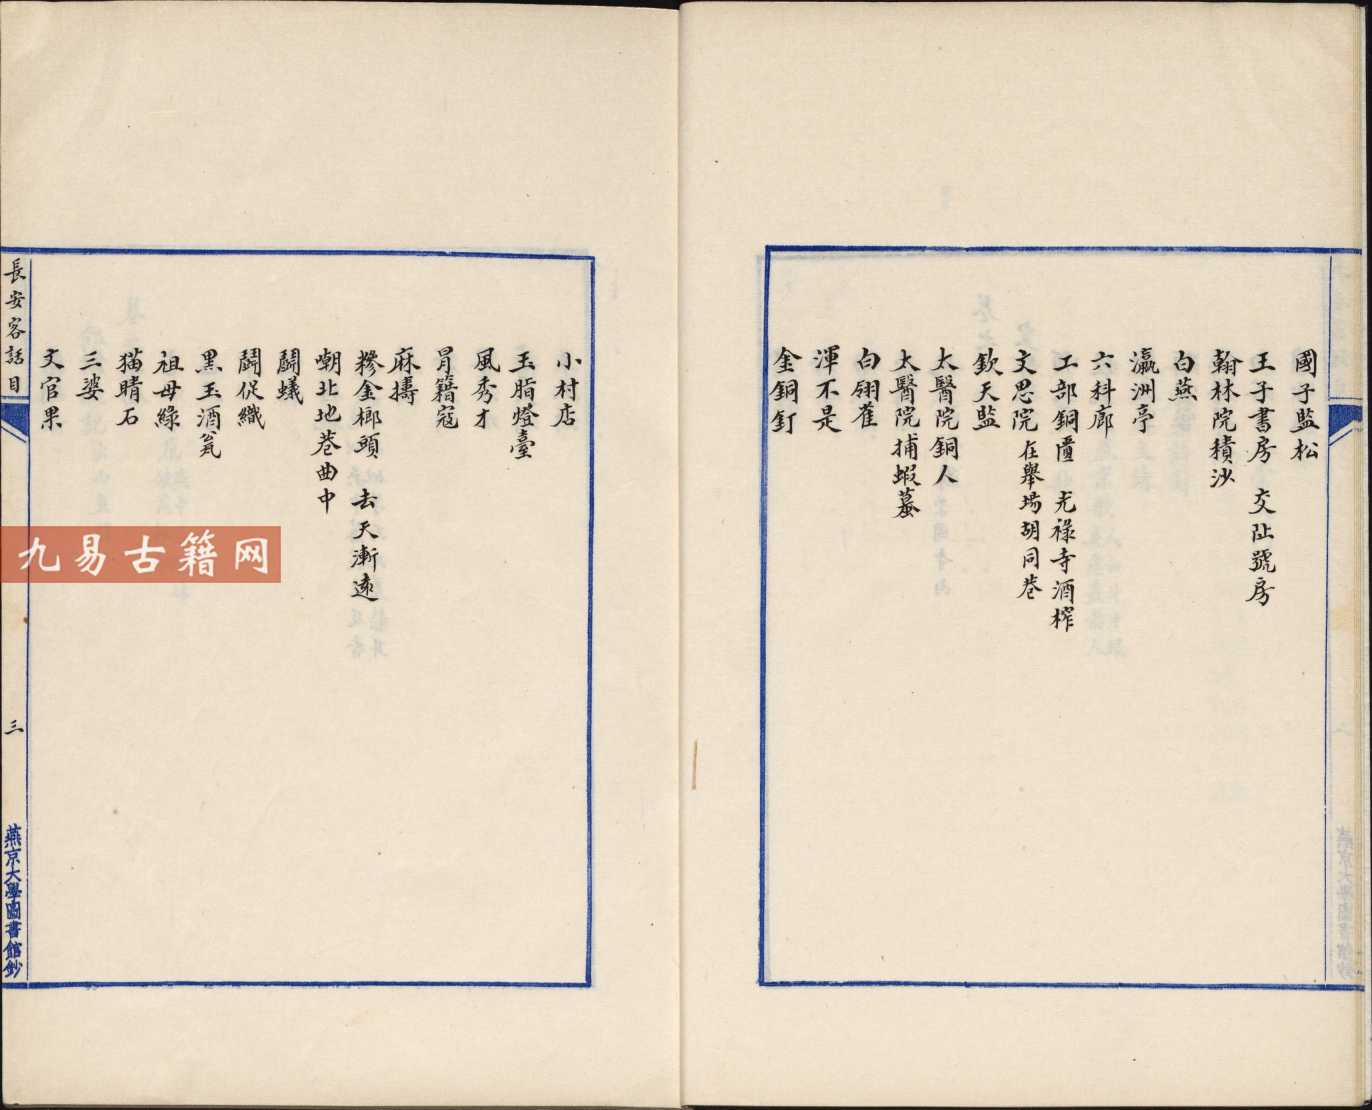 國子監松
王子書房　交阯號房
翰林院積沙
白燕
瀛洲亭
六科廊
工部銅匱　光祿寺酒榨
文思院在舉場胡同巷
欽天監
太醫院銅人
太醫院捕蝦蟇
白翎雀
渾不是
金銅釘
小村店
玉脂燈臺
風秀才
冐籍寇
麻擣
糝金榔頭　去天漸遠
嘲北地巷曲中
鬪蟻
鬪促織
黑玉酒瓮
祖母綠
猫睛石
三婆
文官果
長安客話目
三
燕京大學圖書館鈔
九易古籍网